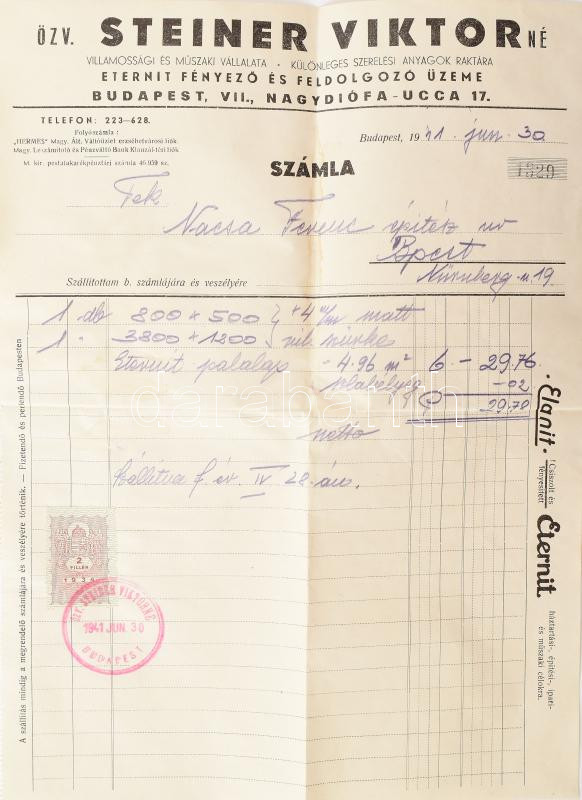 ÖZV. STEINER VIKTORNÉ
VILLAMOSSÁGI ÉS MŰSZAKI VÁLLALATA · KÜLÖNLEGES SZERELÉSI ANYAGOK RAKTÁRA
ETERNIT FÉNYEZŐ ÉS FELDOLGOZÓ ÜZEME
BUDAPEST, VII., NAGYDIÓFA-UCCA 17.
TELEFON: 223-628.
Folyószámla:
„HERMES" Magy. Ált. Váltóüzlet erzsébetvárosi fiók
Magy. Leszámítoló és Pénzváltó Bank Klauzál-téri fiók
M. kir. postatakarékpénztári számla 46.959 sz.
Budapest, 1941 jun. 30
SZÁMLA
1820
Tek
Nacsa Ferenc építész ur
Bpest
Nürnberg-u 19.
Szállítottam b. számlájára és veszélyére
1 db 800 * 500 * 4 m/m matt
1 " 3800 * 1200
Eternit palalap - 4.96 m² 6 - 29.76
-02
P 29.78
netto
Szállitva f. év. IV 28.-án.
2
FILLÉR
1934
ÖZV. STEINER VIKTORNÉ
1941 JUN. 30
BUDAPEST
A szállítás mindig a megrendelő számlájára és veszélyére történik. — Fizetendő és perlendő Budapesten
Elanit
Csiszolt és
fényesített
Eternit
háztartási-, építési-, ipari-
és műszaki célokra.
darabanth